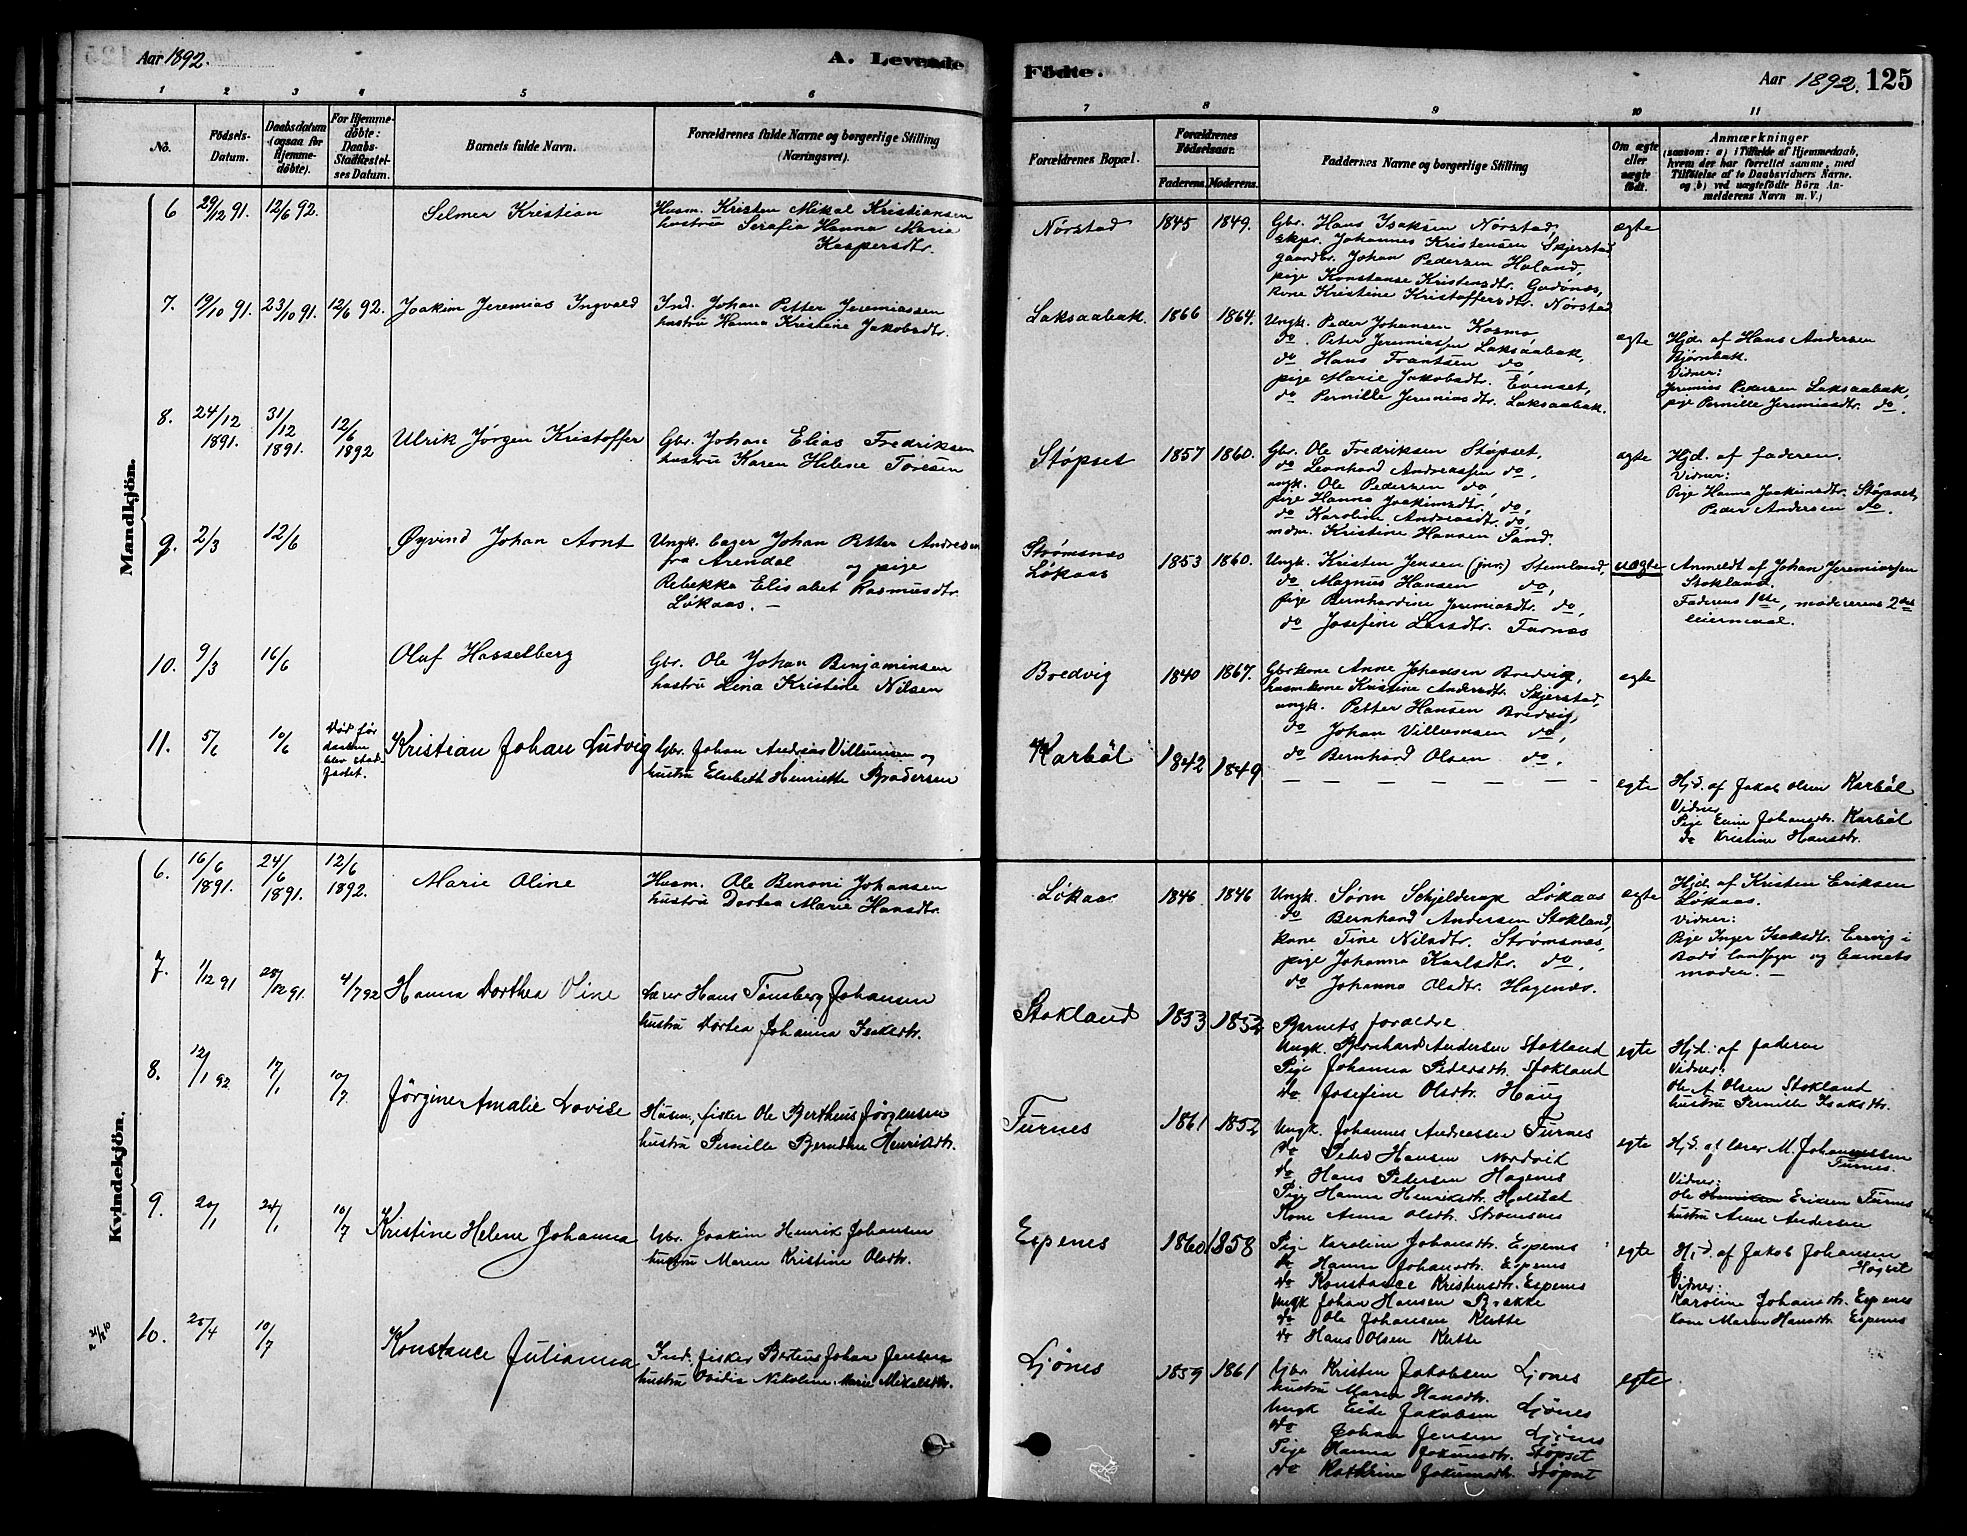 Aar 1892.
A. Levende
Födte.
Aar 1892. 125
1 2 3 4 5 6
7 8 9 10 11
No.
Födsels-Datum.
Daabsdatum (ogsaa for Hjemmedöbte).
For Hjemmedöbte: Daabs-Stadfæstelses Datum.
Barnets fulde Navn.
Forældrenes fulde Navne og borgerlige Stilling
(Næringsvei).
Forældrenes Bopæl.
Forældrenes Födselsaar.
Faderens. Moderens.
Faddernes Navne og borgerlige Stilling
Om ægte eller uægte födt.
Anmærkninger
(saasom: a) i Tilfælde af Hjemmedaab,
hvem der har forrettet samme, med
Tilföielse af to Daabsvidners Navne.
og b) ved uægtefödte Börn Anmelderens Navn m.V.)
Mandkjön.
6 29/12 91. 12/6 92. Selmer Kristian
Husm. Kristen Mikal Kristiansen
hustru Serafia Hanna Maria
Kaspersdtr.
Nørstad 1845 1849.
Gbr. Hans Isaksen Nørstad,
skpr. Johannes Kristensen Skjerstad
gaardbr. Johan Pedersen Høland,
pige Konstanse Kristensdtr. Godønes,
kone Kristine Kristoffersdtr. Nørstad
ægte
7. 19/10 91. 23/10 91. 12/6 92. Joakim Jeremias Ingvald
Ind. Johan Petter Jeremiassen
hustru Hanna Kristine Jakobsdtr.
Laksaabak. 1866 1864.
Ungk. Peder Johansen Kosmo,
do. Peter Jeremiassen Laksaabak,
do Hans Frantsen do,
pige Marie Jakobsdtr. Evenset,
do Pernille Jeremiasdtr. Laksaabak.
ægte
Hjd. af Hans Andersen
Bjørnbak.
Vidner:
Jeremias Pedersen Laksaabak,
pige Pernille Jeremiasdtr. do.
8. 24/12 1891. 31/12 1891. 12/6 1892 Ulrik Jørgen Kristoffer
Gbr. Johan Elias Fredriksen
hustru Karen Helene Tøresen
Støpset 1857 1860.
Gbr. Ole Fredriksen Støpset,
do Leonhard Andreassen do,
ungk. Ole Pedersen do,
pige Hanna Joakimsdtr. do,
do Karoline Andreasdtr. do,
mdm. Kristine Hansen Sand.
ægte
Hjd. af faderen.
Vidner:
Pige Hanna Joakimsdtr. Støpset,
Peder Andersen do.
9. 2/3 12/6 Øyvind Johan Arnt
Ungk. bager Johan Petter Andresen
fra Arendal og pige
Rebekka Elisabet Rasmusdtr.
Løkaas. —
Strømsnæs
Løkaas 1853 1860.
Ungk. Kristen Jensen (jnr.) Stemland,
do Magnus Hansen do,
pige Bernhardine Jeremiasdtr. do,
do Josefine Larsdtr. Turnæs
uægte
Anmeldt af Johan Jeremiassen
Stokland.
Faderens 1ste, moderens 2det
leiermaal.
10. 9/3 16/6 Oluf Hasselberg
Gbr. Ole Johan Benjaminsen
hustru Lina Kristine Nilsen
Bredvig 1840 1867.
Gbrkone Anne Johansen Bredvig,
husmkone Kristine Andersdtr. Skjerstad,
ungk. Petter Hansen Bredvig,
do Johan Villumsen do,
do Bernhard Olsen do,
egte
11. 5/6 10/6 Død før daaben blev stadfæstet. Kristian Johan Ludvig
Gbr. Johan Andreas Villumsen og
hustru Elisabeth Henriette Brodersen
Karbøl 1842 1849
— — — — — — —
egte
Hjd. af Jakob Olsen Karbøl
Vidner
Pige Johansdtr. Karbøl
do Kristine Hansdtr.
Kvindekjön.
6. 16/6 1891. 24/6 1891. 12/6 1892. Marie Oline
Husm. Ole Benoni Johansen
hustru Dortea Marie Hansdtr.
Løkaas 1846 1846
Ungk. Søren Schjelderup Løkaas
do Bernhard Andersen Stokland,
kone Tine Nilsdtr. Strømsnæs,
pige Johanna Karlsdtr. do,
do Johanna Olsdtr. Hagenæs.
ægte
Hjd. af Kristen Eriksen
Løkaas.
Vidner:
Pige Inger Isaksdtr. i
Bodø landsogn og barnets
moder. —
7. 1/12 91 28/12 91. 4/7 92 Hanna Dorthea Oline
Lærer Hans Tønsberg Johansen
hustru Dortea Johanna Isaksdtr.
Stokland 1853 1852
Barnets forældre
Ungk. Bernhard Andersen Stokland
Pige Johanna Pedersdtr. Stokland
do Josefine Olsdtr. Haug
egte
Hjd. af faderen
Vidner:
Ole A. Olsen Stokland
hustru Pernille Isaksdtr.
8. 12/1 92 17/1 10/7 Jørgine Amalie Lovise
Husm. fisker Ole Bertheus Jørgensen
hustru Pernille Berndine Henriksdtr.
Turnes 1861 1852
Ungk. Johannes Andreassen Turnes
do Peder Hansen Nordvik
do Hans Pedersen Hagenes
Pige Hanna Henriksdtr. Holstad
Kone Anna Olsdtr. Strømsnes
egte
Hjd. af lærer M. Johannessen
Turnes.
Vidner:
Ole Eriksen Turnes
hustru Anne Andersen
9. 20/1 24/1 10/7 Kristine Helene Johanna
Gbr. Joakim Henrik Johansen
hustru Maren Kristine Olsdtr.
Espenes 1860 1858
Pige Karoline Johansdtr. Espenes
do Hanna Johansdtr. Espenes
do Konstance Kristensdtr. Espenes
Ungk Johan Hansen Brække
do Ole Johansen Klette
do Hans Olsen Klette
egte
Hjd. af Jakob Johansen
Høgset
Vidner:
Karoline Johansdtr. Espenes
Kone Maren Hansdtr. Espenes
10. 25/4 10/7 Konstance Julianna
Ind. fisker Berteus Johan Jensen
hustru Ovidia Nikoline Marie Mikalsdtr.
Ljønes 1859 1861
Gbr Kristen Jakobsen Ljønes
hustru Maria Hansdtr.
Ungk Eide Jakobsen Ljønes
do Johan Jensen Ljønes
Pige Hanna Jokumsdtr. Støpset
do Kathrine Jokumsdtr. Støpset
egte